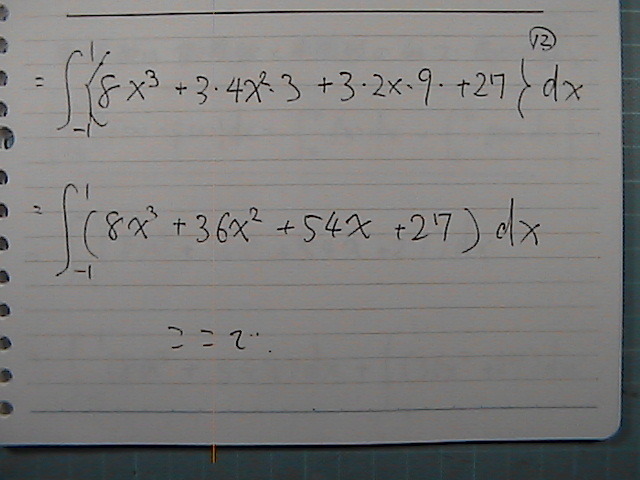 ⑫
= ∫_{-1}^{1} {8x³ + 3·4x²·3 + 3·2x·9· + 27} dx
= ∫_{-1}^{1} (8x³ + 36x² + 54x + 27) dx
ここで….